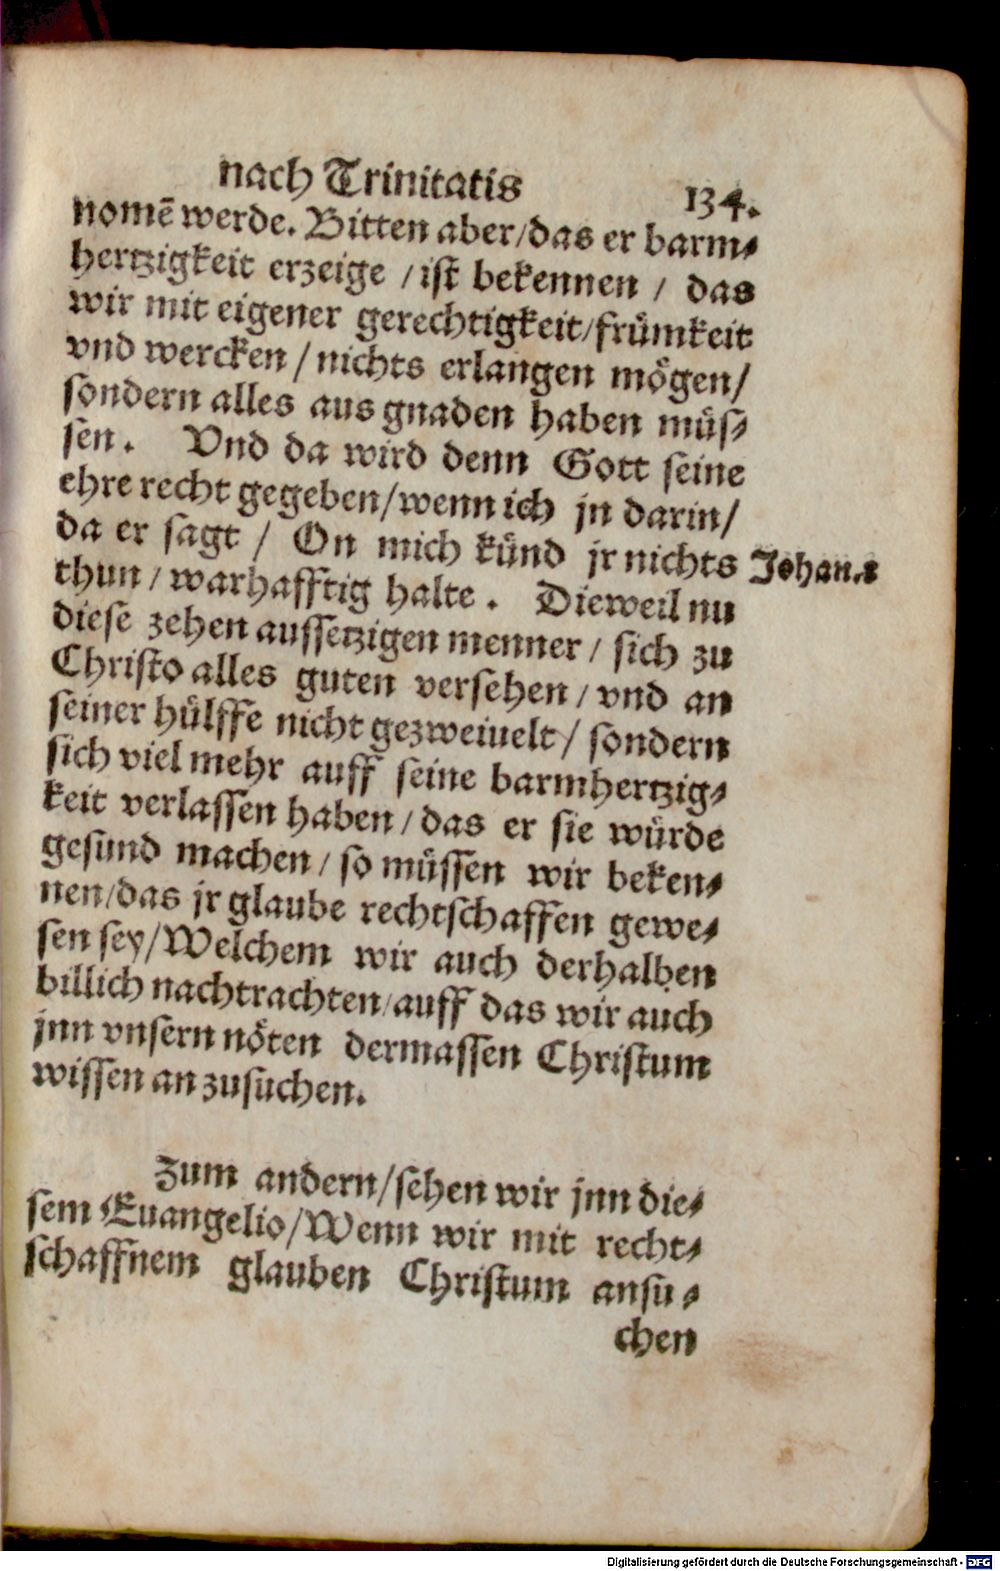 nach Trinitatis 134.
nomē werde. Bitten aber/das er barm⸗
hertzigkeit erzeige / ist bekennen / das
wir mit eigener gerechtigkeit/frümkeit
vnd wercken / nichts erlangen mögen/
sondern alles aus gnaden haben müs⸗
sen. Vnd da wird denn Gott seine
ehre recht gegeben/wenn ich jn darin/
da er sagt / On mich künd jr nichts
Johan.
thun / warhafftig halte. Dieweil nu
diese zehen aussetzigen menner / sich zu
Christo alles guten versehen / vnd an
seiner hülffe nicht gezweiuelt / sondern
sich viel mehr auff seine barmhertzig⸗
keit verlassen haben / das er sie würde
gesund machen / so müssen wir beken⸗
nen/das jr glaube rechtschaffen gewe⸗
sen sey/Welchem wir auch derhalben
billich nachtrachten/auff das wir auch
jnn vnsern nöten dermassen Christum
wissen an zusuchen.
Zum andern/sehen wir jnn die⸗
sem Euangelio/Wenn wir mit recht⸗
schaffnem glauben Christum ansu⸗
chen
Digitalisierung gefördert durch die Deutsche Forschungsgemeinschaft - DFG